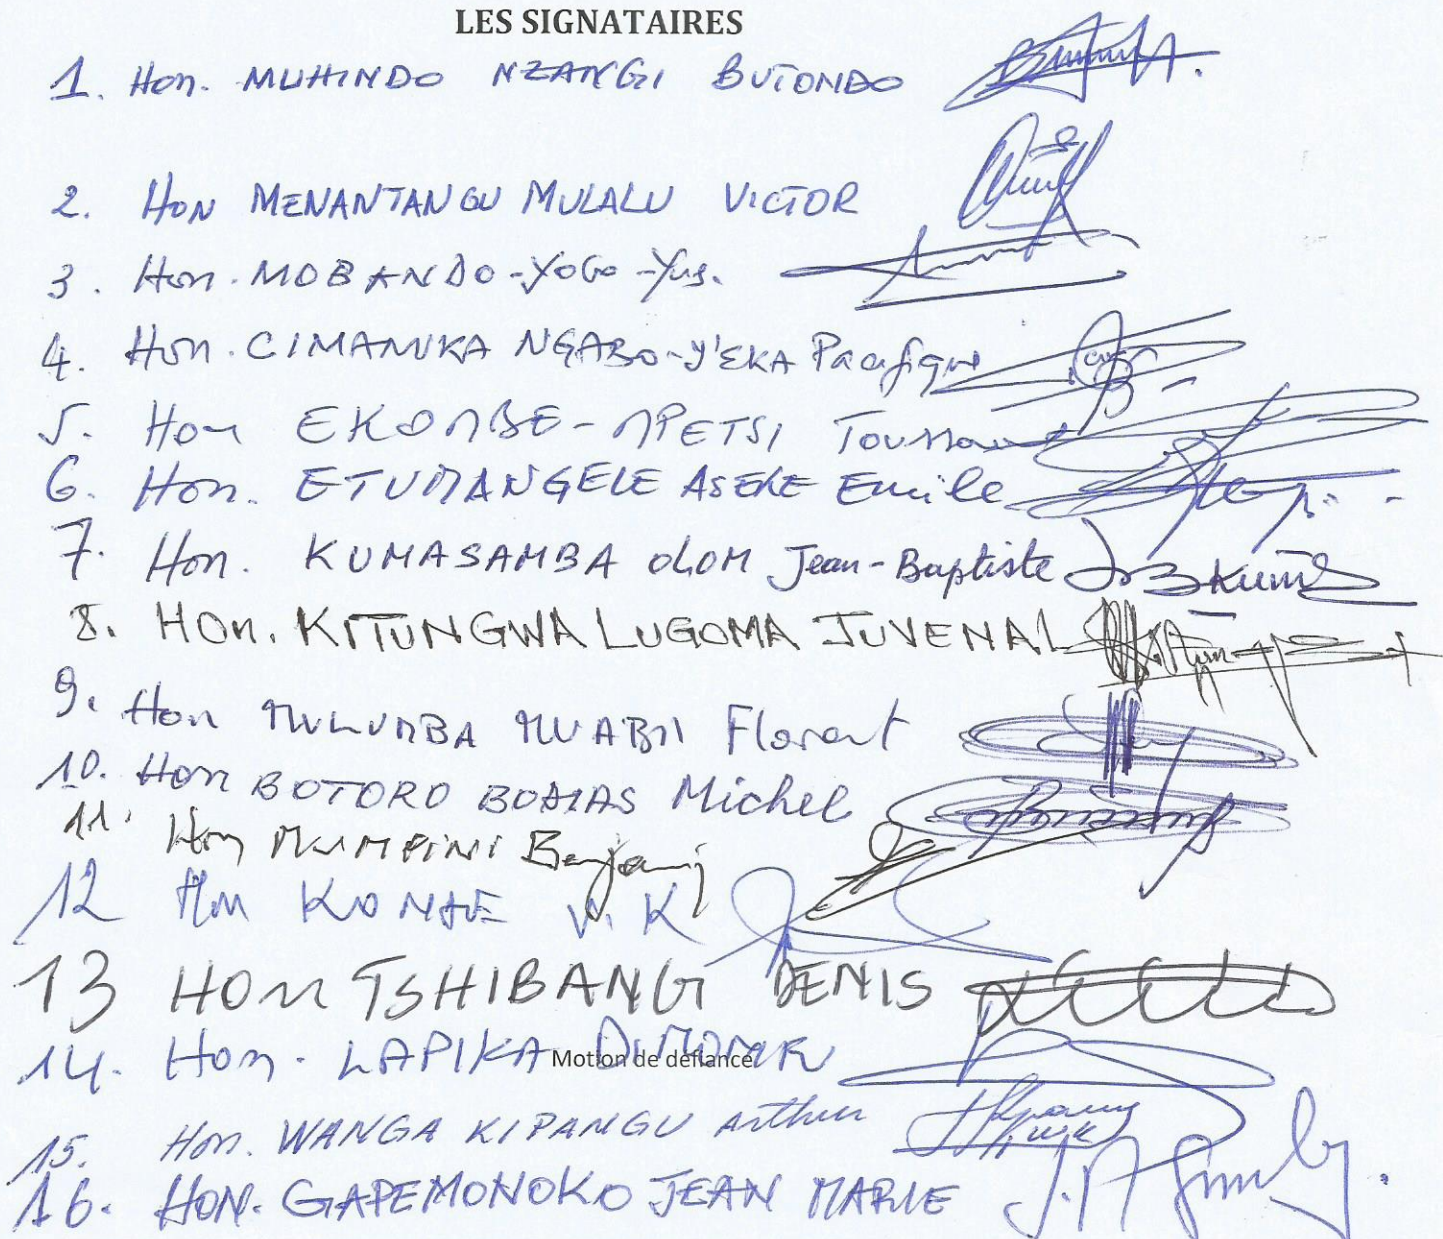 LES SIGNATAIRES
1. Hon. MUHINDO NZANGI BUTONDO
2. HON MENANTANGU MULALU VICTOR
3. Hon. MOBANDO-YOGO-Yus.
4. Hon. CIMANUKA NGABO-Y'EKA Pacifique
5. Hon EKOMBE-MPETSI
6. Hon. ETUMANGELE ASEKE Emile
7. Hon. KUMASAMBA OLOM Jean-Baptiste
8. HON. KITUNGWA LUGOMA JUVENAL
9. Hon MULUMBA MUABII Florent
10. Hon BOTORO BODIAS Michel
11. Hon Benjamin
12 Hn V. K
13 HON TSHIBANG DENIS
14. Hon. LAPIKA
Motion de défiance
15. Hon. WANGA KIPANGU Arthur
16. HON. GAPEMONOKO JEAN MARIE